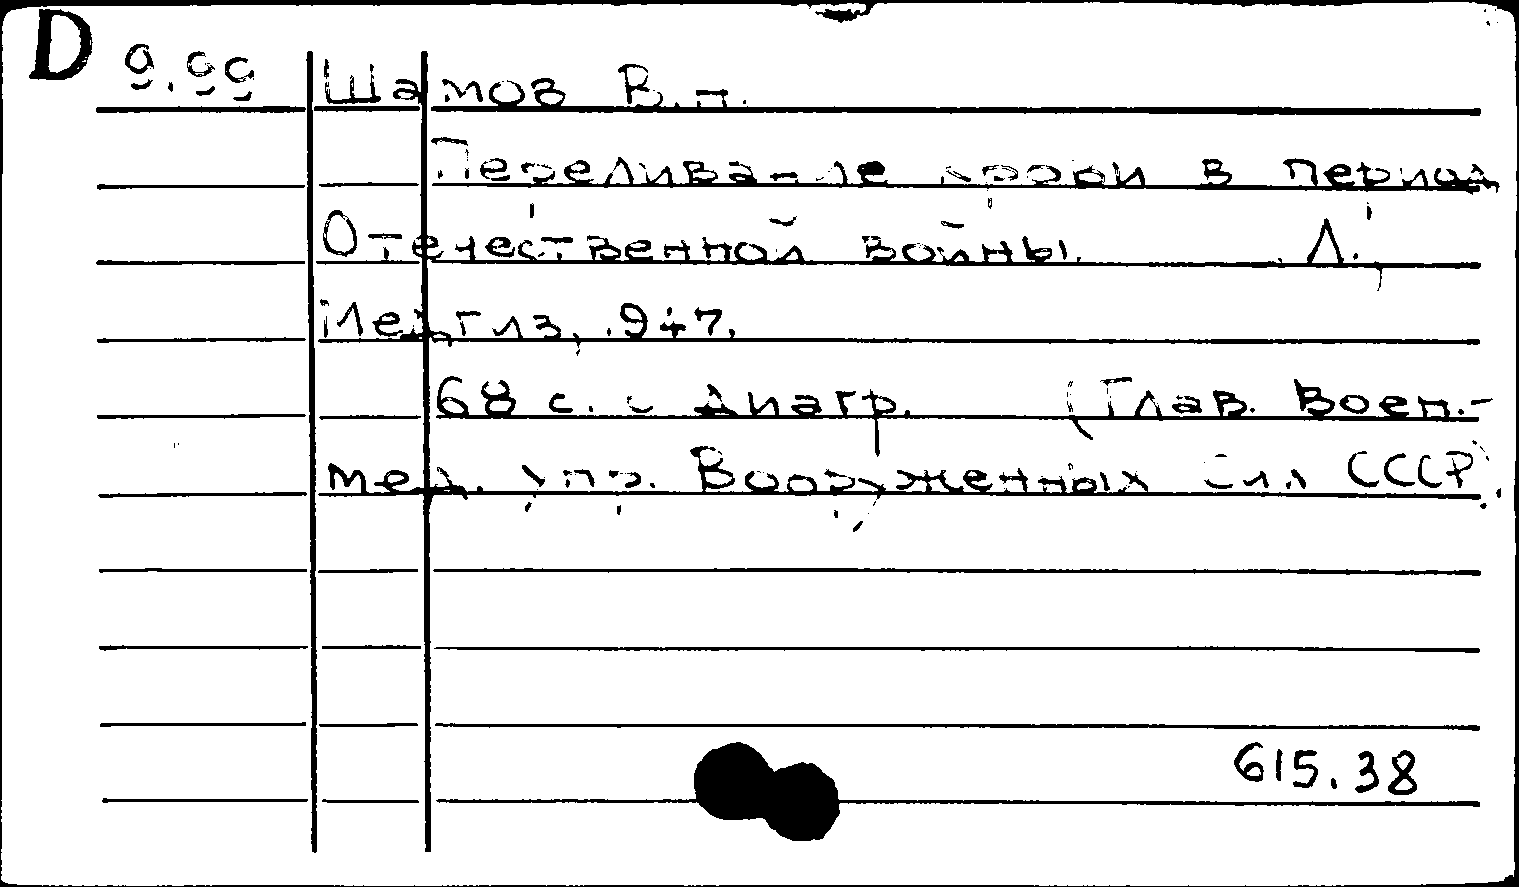 D 9.99 Шамов В.н.
Переливание крови в период
Отечественной войны. Л.,
Медгиз, 1947.
68 с. с диагр. (Глав. Воен.-
мед. упр. Вооруженных Сил СССР).
615.38